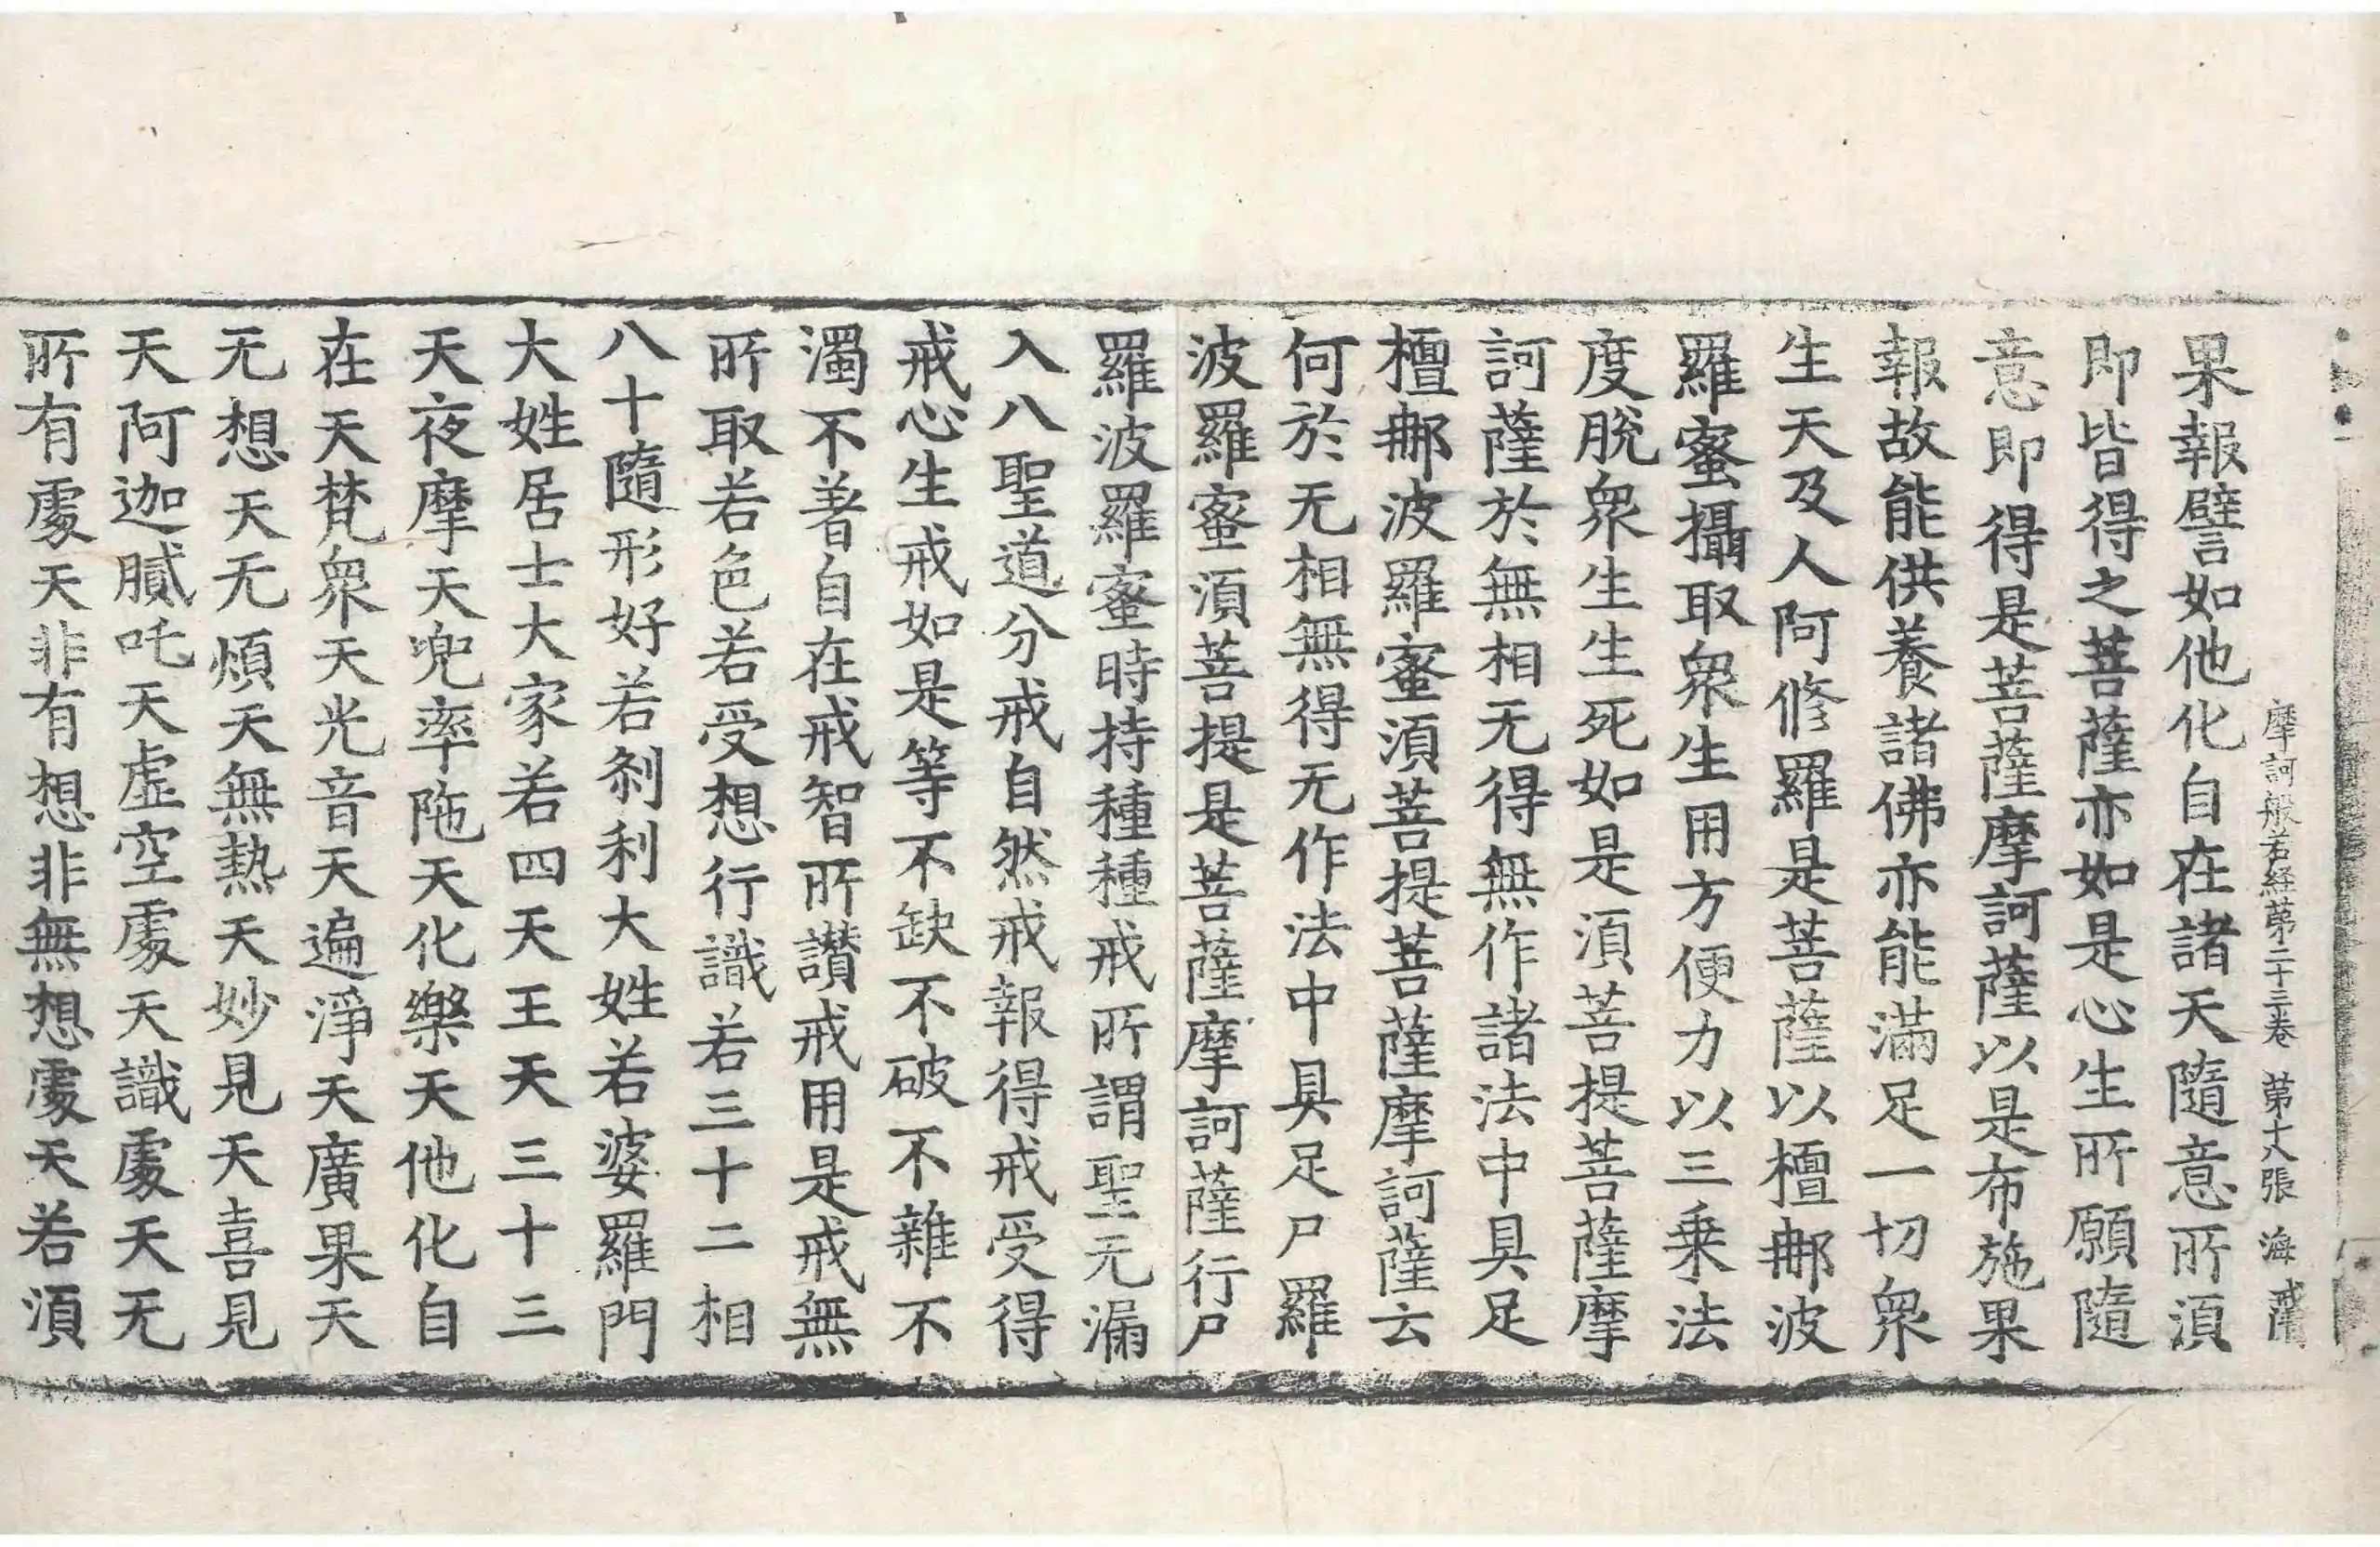 摩訶般若経第二十三卷 第十八張 海 戒
果報譬如他化自在諸天隨意所湏
即皆得之菩薩亦如是心生所願隨
意即得是菩薩摩訶薩以是布施果
報故能供養諸佛亦能滿足一切衆
生天及人阿修羅是菩薩以檀𨚗波
羅蜜攝取衆生用方便力以三乗法
度脫衆生生死如是湏菩提菩薩摩
訶薩於無相无得無作諸法中具足
檀𨚗波羅蜜湏菩提菩薩摩訶薩云
何於无相無得无作法中具足尸羅
波羅蜜湏菩提是菩薩摩訶薩行尸
羅波羅蜜時持種種戒所謂聖无漏
入八聖道分戒自然戒報得戒受得
戒心生戒如是等不缺不破不雜不
濁不著自在戒智所讃戒用是戒無
所取若色若受想行識若三十二相
八十隨形好若刹利大姓若婆羅門
大姓居士大家若四天王天三十三
天夜摩天兜率陁天化樂天他化自
在天梵衆天光音天遍淨天廣果天
无想天无煩天無熱天妙見天喜見
天阿迦膩吒天虛空處天識處天无
所有處天非有想非無想處天若湏